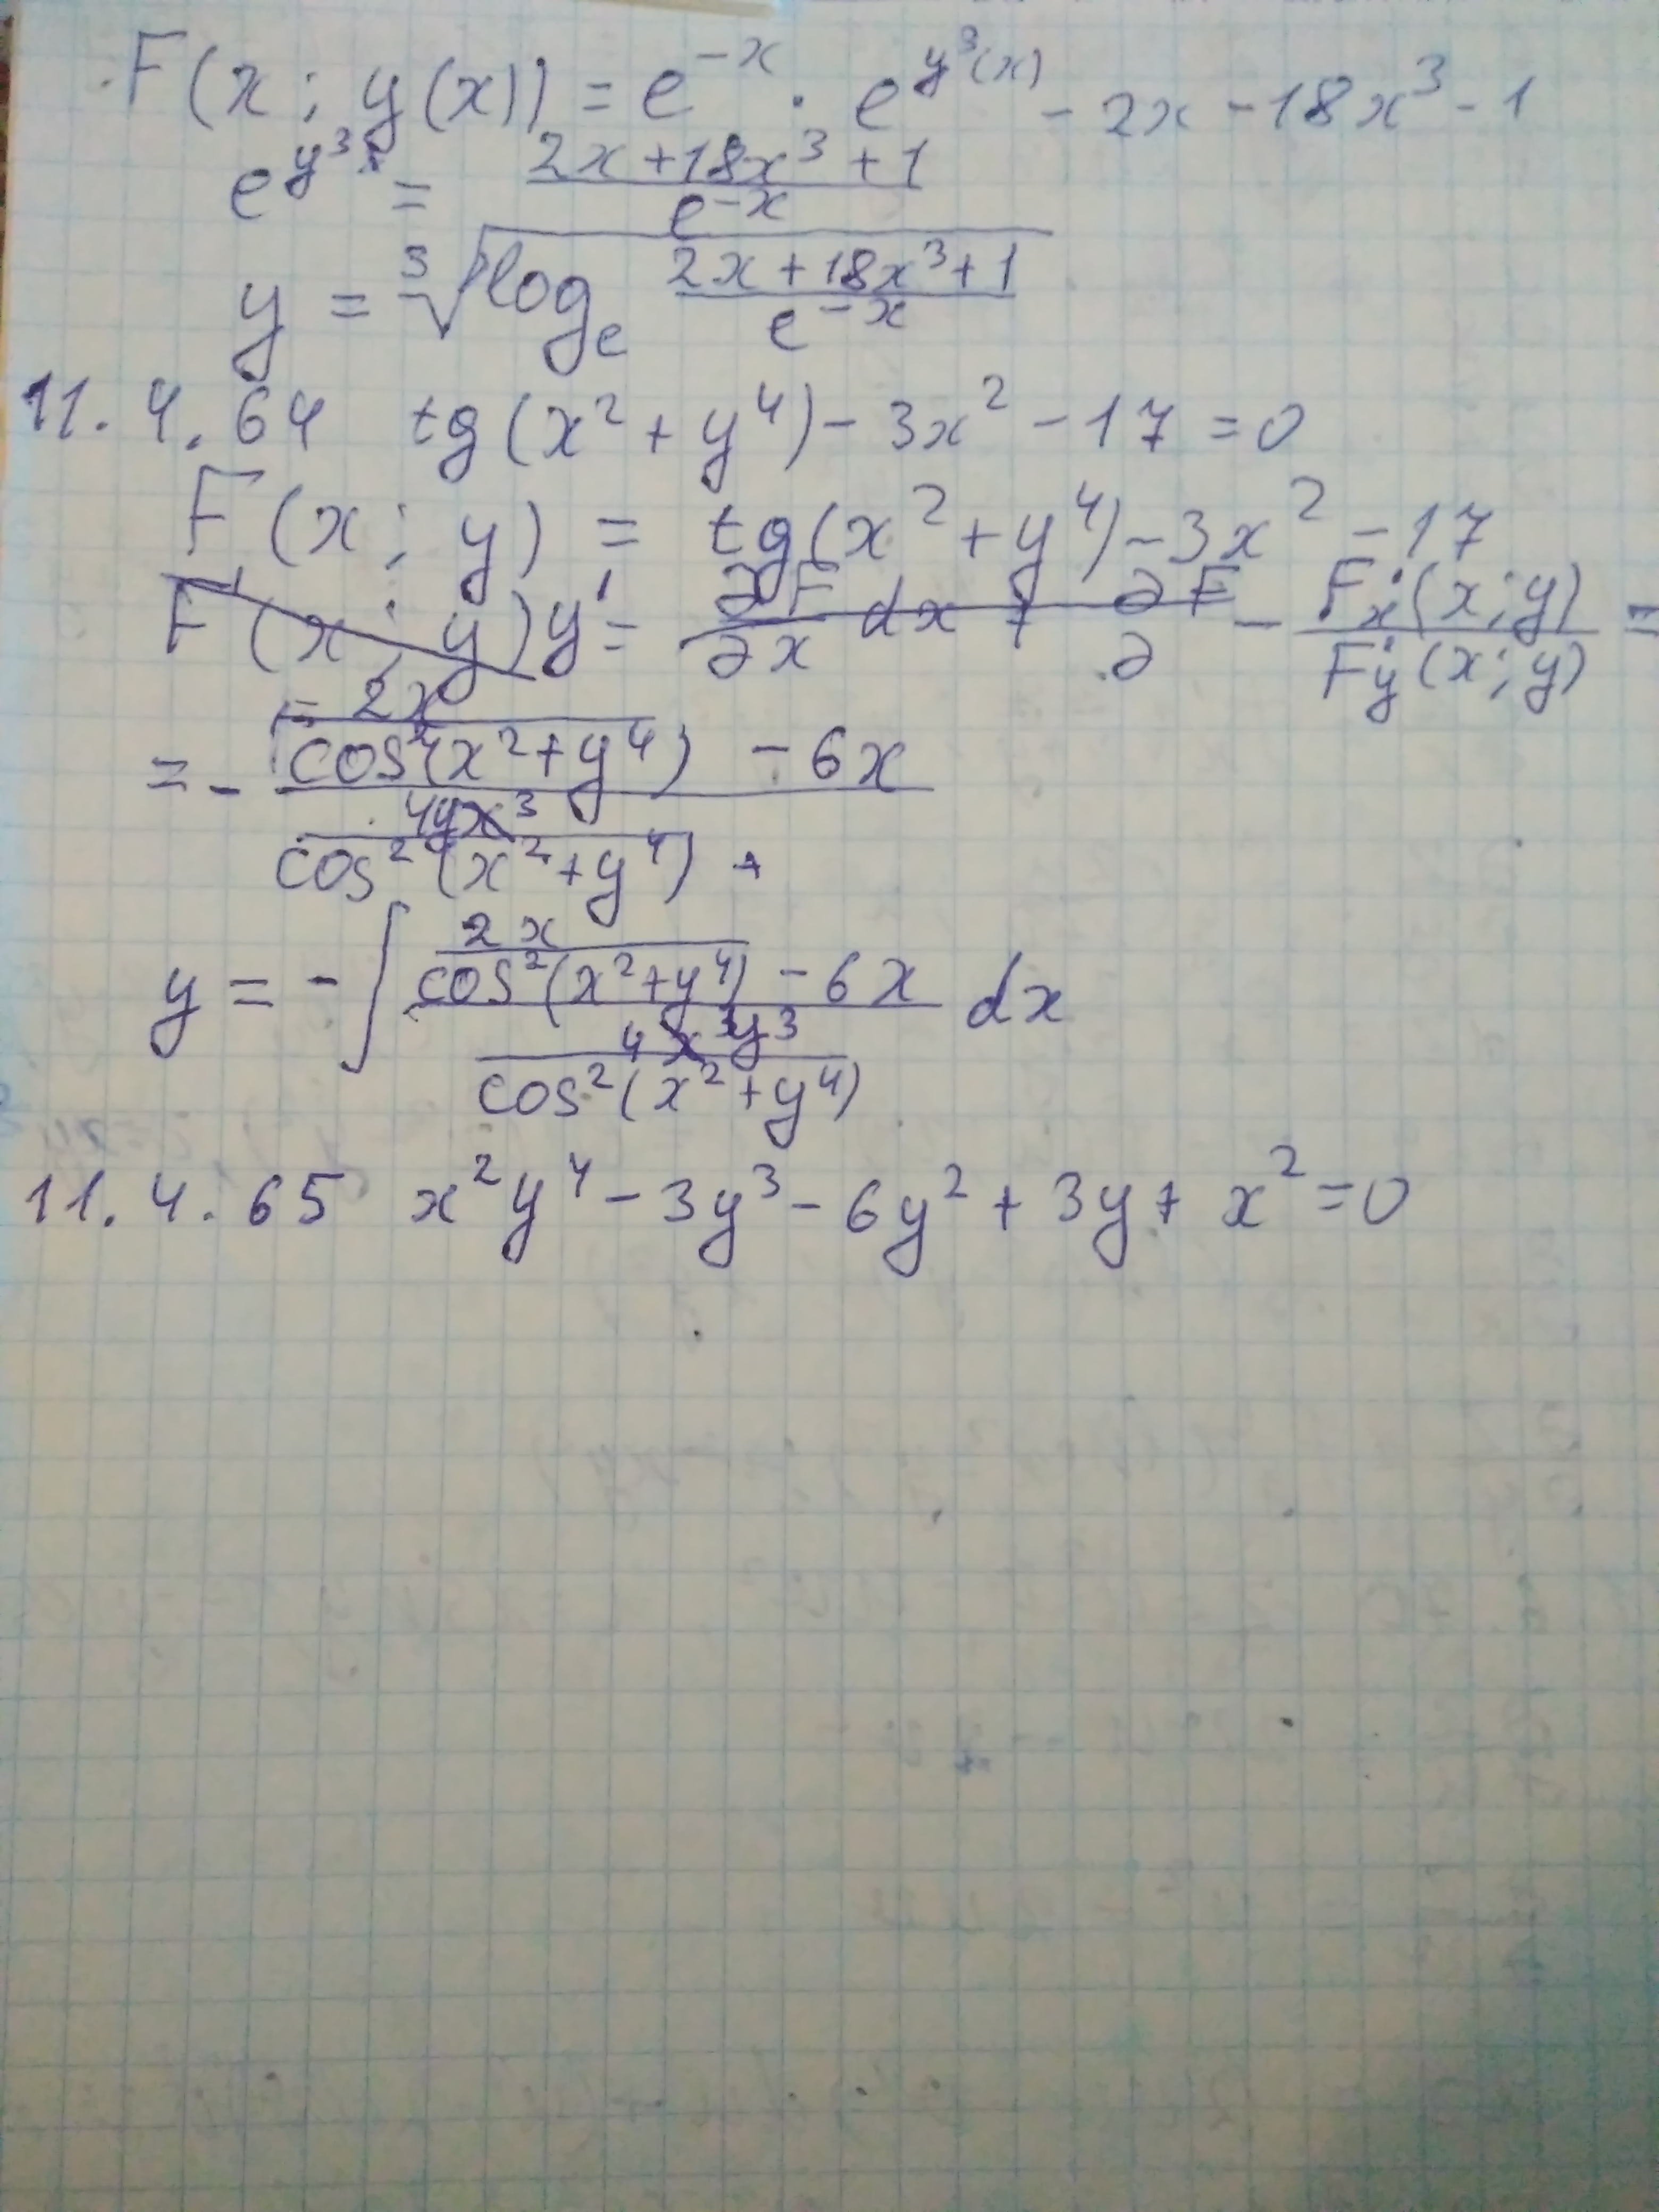 F(x; y(x)) = e^{-x} · e^{y^3(x)} - 2x - 18x^3 - 1
e^{y^3} = \frac{2x+18x^3+1}{e^{-x}}
y = \sqrt[3]{log_e \frac{2x+18x^3+1}{e^{-x}}}
11.4.64 tg(x^2+y^4) - 3x^2 - 17 = 0
F(x; y) = tg(x^2+y^4) - 3x^2 - 17
F'(x; y) y' = \frac{∂F}{∂x} dx + \frac{∂F}{∂} - \frac{F'_x(x; y)}{F'_y(x; y)} =
= - \frac{\frac{2x}{cos^2(x^2+y^4)} - 6x}{\frac{4yx^3}{cos^2(x^2+y^4)}}
y = - ∫ \frac{\frac{2x}{cos^2(x^2+y^4)} - 6x}{\frac{4x^3y^3}{cos^2(x^2+y^4)}} dx
11.4.65 x^2y^4 - 3y^3 - 6y^2 + 3y + x^2 = 0